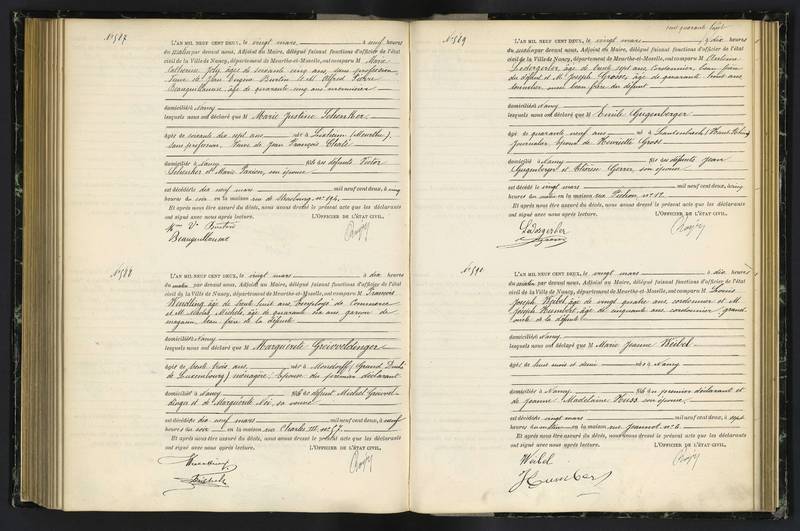 N° 587
L'AN MIL NEUF CENT DEUX, le vingt mars à neuf heures
du matin par devant nous, Adjoint au Maire, délégué faisant fonctions d'officier de l'état
civil de la Ville de Nancy, département de Meurthe-et-Moselle, ont comparu M Marie
Catherine Joly, âgée de soixante cinq ans, sans profession,
âgé de quarante cinq ans
domiciliés à Nancy
lesquels nous ont déclaré que M Marie Justine Schenker
âgée de soixante dix sept ans née à Lixheim (Meurthe)
sans profession, Veuve de Jean François
domiciliée à Nancy fille de défunts Victor
Schenker et Marie son épouse
est décédée dix neuf mars mil neuf cent deux, à cinq
heures du soir en la maison rue de Strasbourg, n°
Et après nous être assuré du décès, nous avons dressé le présent acte que les déclarants
ont signé avec nous après lecture. L'OFFICIER DE L'ÉTAT CIVIL,
Beauguillaume
N° 588
L'AN MIL NEUF CENT DEUX, le vingt mars à dix heures
du matin par devant nous, Adjoint au Maire, délégué faisant fonctions d'officier de l'état
civil de la Ville de Nancy, département de Meurthe-et-Moselle, ont comparu M François
Wendling, âgé de trente huit ans, Employé de Commerce
et M. Michels, âgé de quarante six ans garçon de
magasin, beau frère de la défunte
domiciliés à Nancy
lesquels nous ont déclaré que M Marguerite Greiveldinger
âgée de trente trois ans née à Mondorff (Grand Duché
de Luxembourg) ménagère, Epouse du premier déclarant
domiciliée à Nancy fille de défunt Michel Greivel-
dinger et de Marguerite sa veuve
est décédée dix neuf mars mil neuf cent deux, à neuf
heures du soir en la maison rue Charles III, n° 57
Et après nous être assuré du décès, nous avons dressé le présent acte que les déclarants
ont signé avec nous après lecture. L'OFFICIER DE L'ÉTAT CIVIL,
Wendling
Michels
N° 589
L'AN MIL NEUF CENT DEUX, le vingt mars à dix heures
du matin par devant nous, Adjoint au Maire, délégué faisant fonctions d'officier de l'état
civil de la Ville de Nancy, département de Meurthe-et-Moselle, ont comparu M
Ledergerber âgé de trente sept ans, Cordonnier, beau frère
du défunt et M. Joseph Gross, âgé de quarante ans
aussi beau frère du défunt
domiciliés à Nancy
lesquels nous ont déclaré que M Emile Gugenberger
âgé de quarante neuf ans né à Lautenbach (Haut Rhin)
journalier, époux de Henriette Gross
domicilié à Nancy fils de défunts Jean
Gugenberger et Thérèse son épouse
est décédé le vingt mars mil neuf cent deux, à cinq
heures du matin en la maison rue Pichon, n°
Et après nous être assuré du décès, nous avons dressé le présent acte que les déclarants
ont signé avec nous après lecture. L'OFFICIER DE L'ÉTAT CIVIL,
Ledergerber
N° 590
L'AN MIL NEUF CENT DEUX, le vingt mars à dix heures
du matin par devant nous, Adjoint au Maire, délégué faisant fonctions d'officier de l'état
civil de la Ville de Nancy, département de Meurthe-et-Moselle, ont comparu M
Joseph Weibel âgé de vingt quatre ans, cordonnier et M.
Joseph Humbert, âgé de cinquante ans, cordonnier, grand
oncle de la défunte
domiciliés à Nancy
lesquels nous ont déclaré que M Marie Jeanne Weibel
âgée de huit mois et demi née à Nancy
domiciliée à Nancy fille du premier déclarant et
de Jeanne Madelaine son épouse
est décédée vingt mars mil neuf cent deux, à sept
heures du matin en la maison rue Jeannot n° 6.
Et après nous être assuré du décès, nous avons dressé le présent acte que les déclarants
ont signé avec nous après lecture. L'OFFICIER DE L'ÉTAT CIVIL,
Weibel
J Humbert